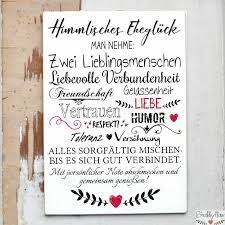 Himmlisches Eheglück
MAN NEHME:
Zwei Lieblingsmenschen
Liebevolle Verbundenheit
Freundschaft Gelassenheit
Vertrauen LIEBE
RESPEKT! HUMOR
Toleranz Versöhnung
ALLES SORGFÄLTIG MISCHEN
BIS ES SICH GUT VERBINDET.
Mit persönlicher Note abschmecken und
gemeinsam genießen!